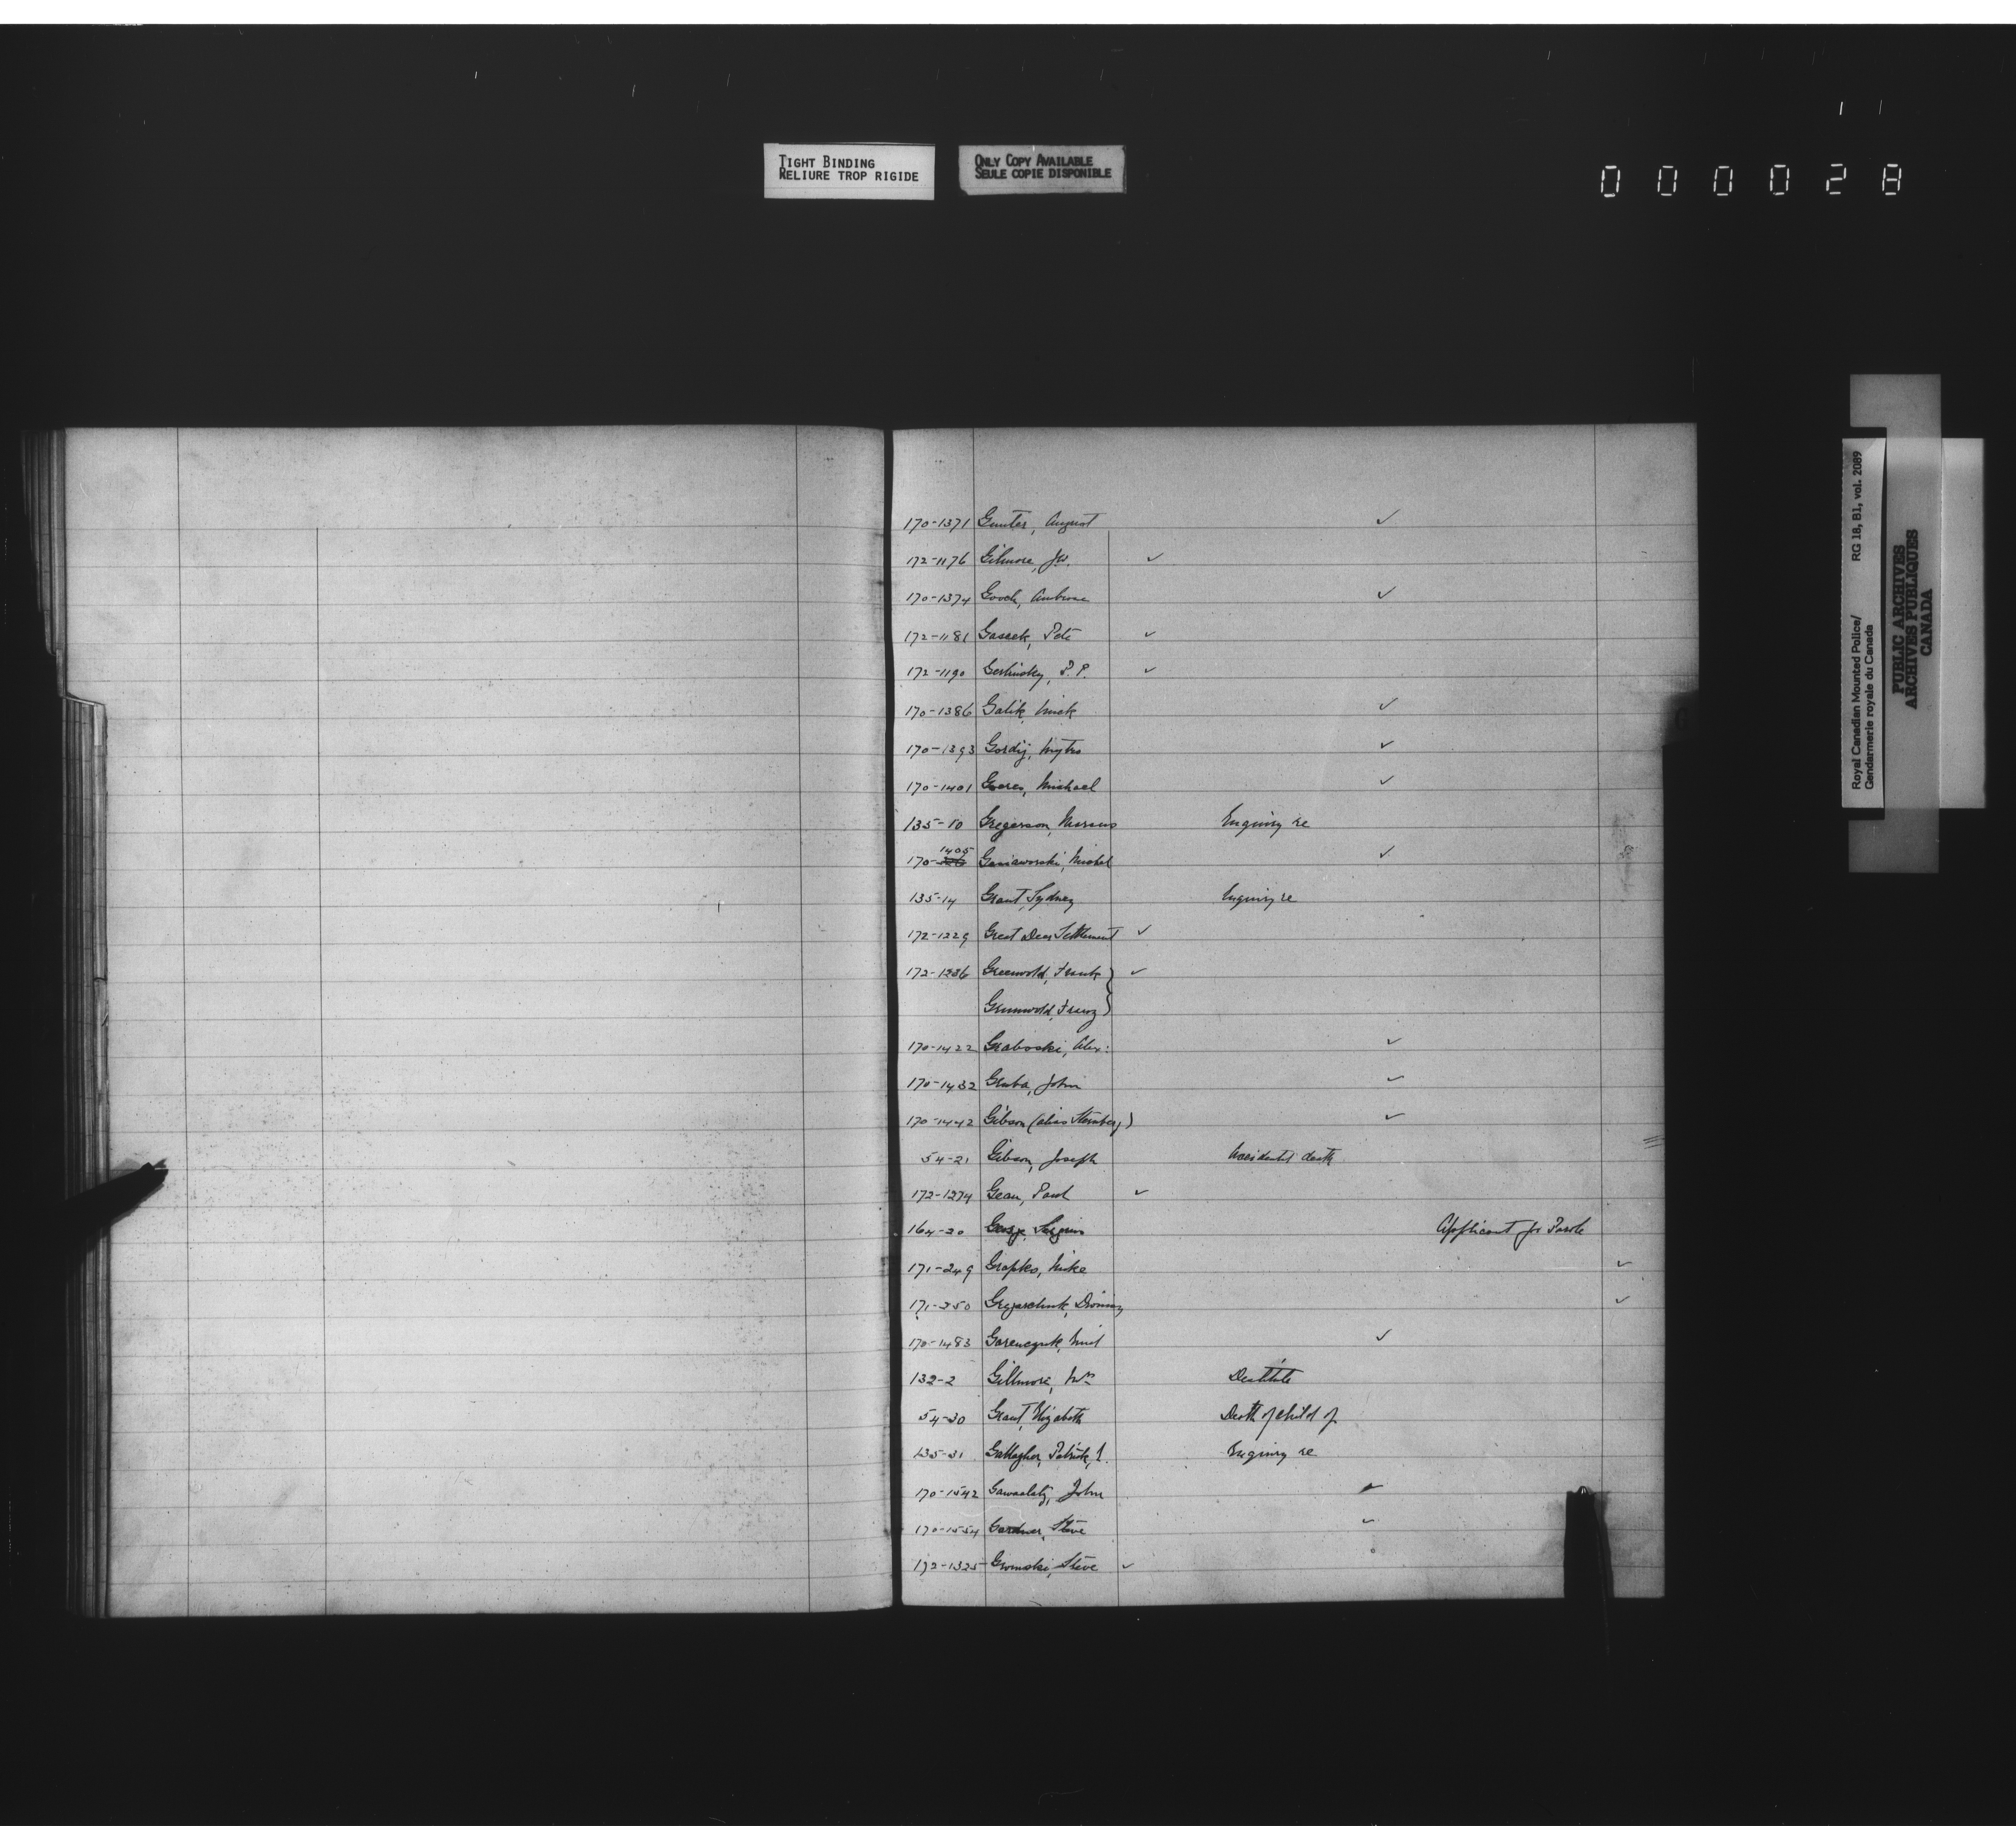 TIGHT BINDING
RELIURE TROP RIGIDE
ONLY COPY AVAILABLE
SEULE COPIE DISPONIBLE
000028
170-1371 Gunter, August ✓
172-1176 Gilmore, J.W. ✓
170-1374 Gooch, Ambrose ✓
172-1181 Gascek, Pete ✓
172-1190 Gerlinsky, P. P. ✓
170-1386 Galik, ✓
170-1393 Gordij, Mytro ✓
170-1401 Michael ✓
135-10 Gregerson, Marcus Enquiry re
170-1405 Michel ✓
135-14 Grant, Sydney Enquiry re
172-1229 Great Deer Settlement ✓
172-1236 Greenwold, Frank ✓
Grunwold, Franz
170-1422 Graboski, Alex: ✓
170-1432 Gruba, John ✓
170-1442 Gibson (alias Steinberg) ✓
54-21 Gibson, Joseph Accidental death
172-1274 Gean, Paul ✓
164-20 George, Applicant for Parole
171-249 Grapko, Mike ✓
171-250 ✓
170-1483 ✓
132-2 Gillmore, Mrs Destitute
54-30 Grant, Elizabeth Death of child of
135-31 Gallagher, Patrick, J. Enquiry re
170-1542 John ✓
170-1554 Gardner, Steve ✓
172-1325 Gromski, Steve ✓
Royal Canadian Mounted Police/
Gendarmerie royale du Canada
RG 18, B1, vol. 2089
PUBLIC ARCHIVES
ARCHIVES PUBLIQUES
CANADA